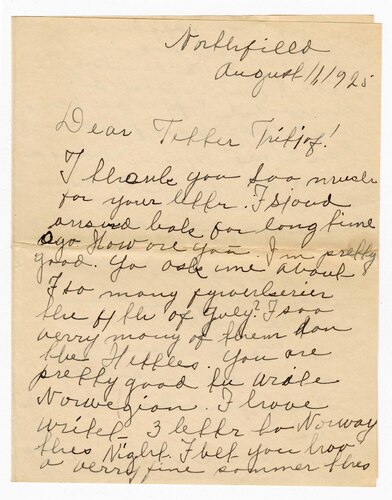 Northfielld
August 1, 1925
Dear Tetter Fritjof!
I thank you soo much
for your letter. I sjoud
ansvrd bak for long time
ago How are you. I'm pretty
good. Yo ask me about
I so many fyverkerier
the 4th of July? I soo
verry many of them fron
the Hilltes. You are
pretty good to wride
Norwegian. I have
writet 3 letter to Norway
thes Night. I bet you hav
a verry fine sommer thes